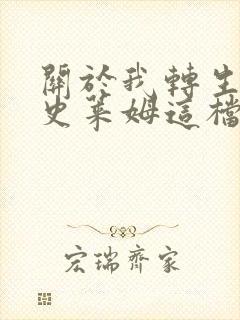 關於我轉生
史萊姆這檔
宏瑞齊家